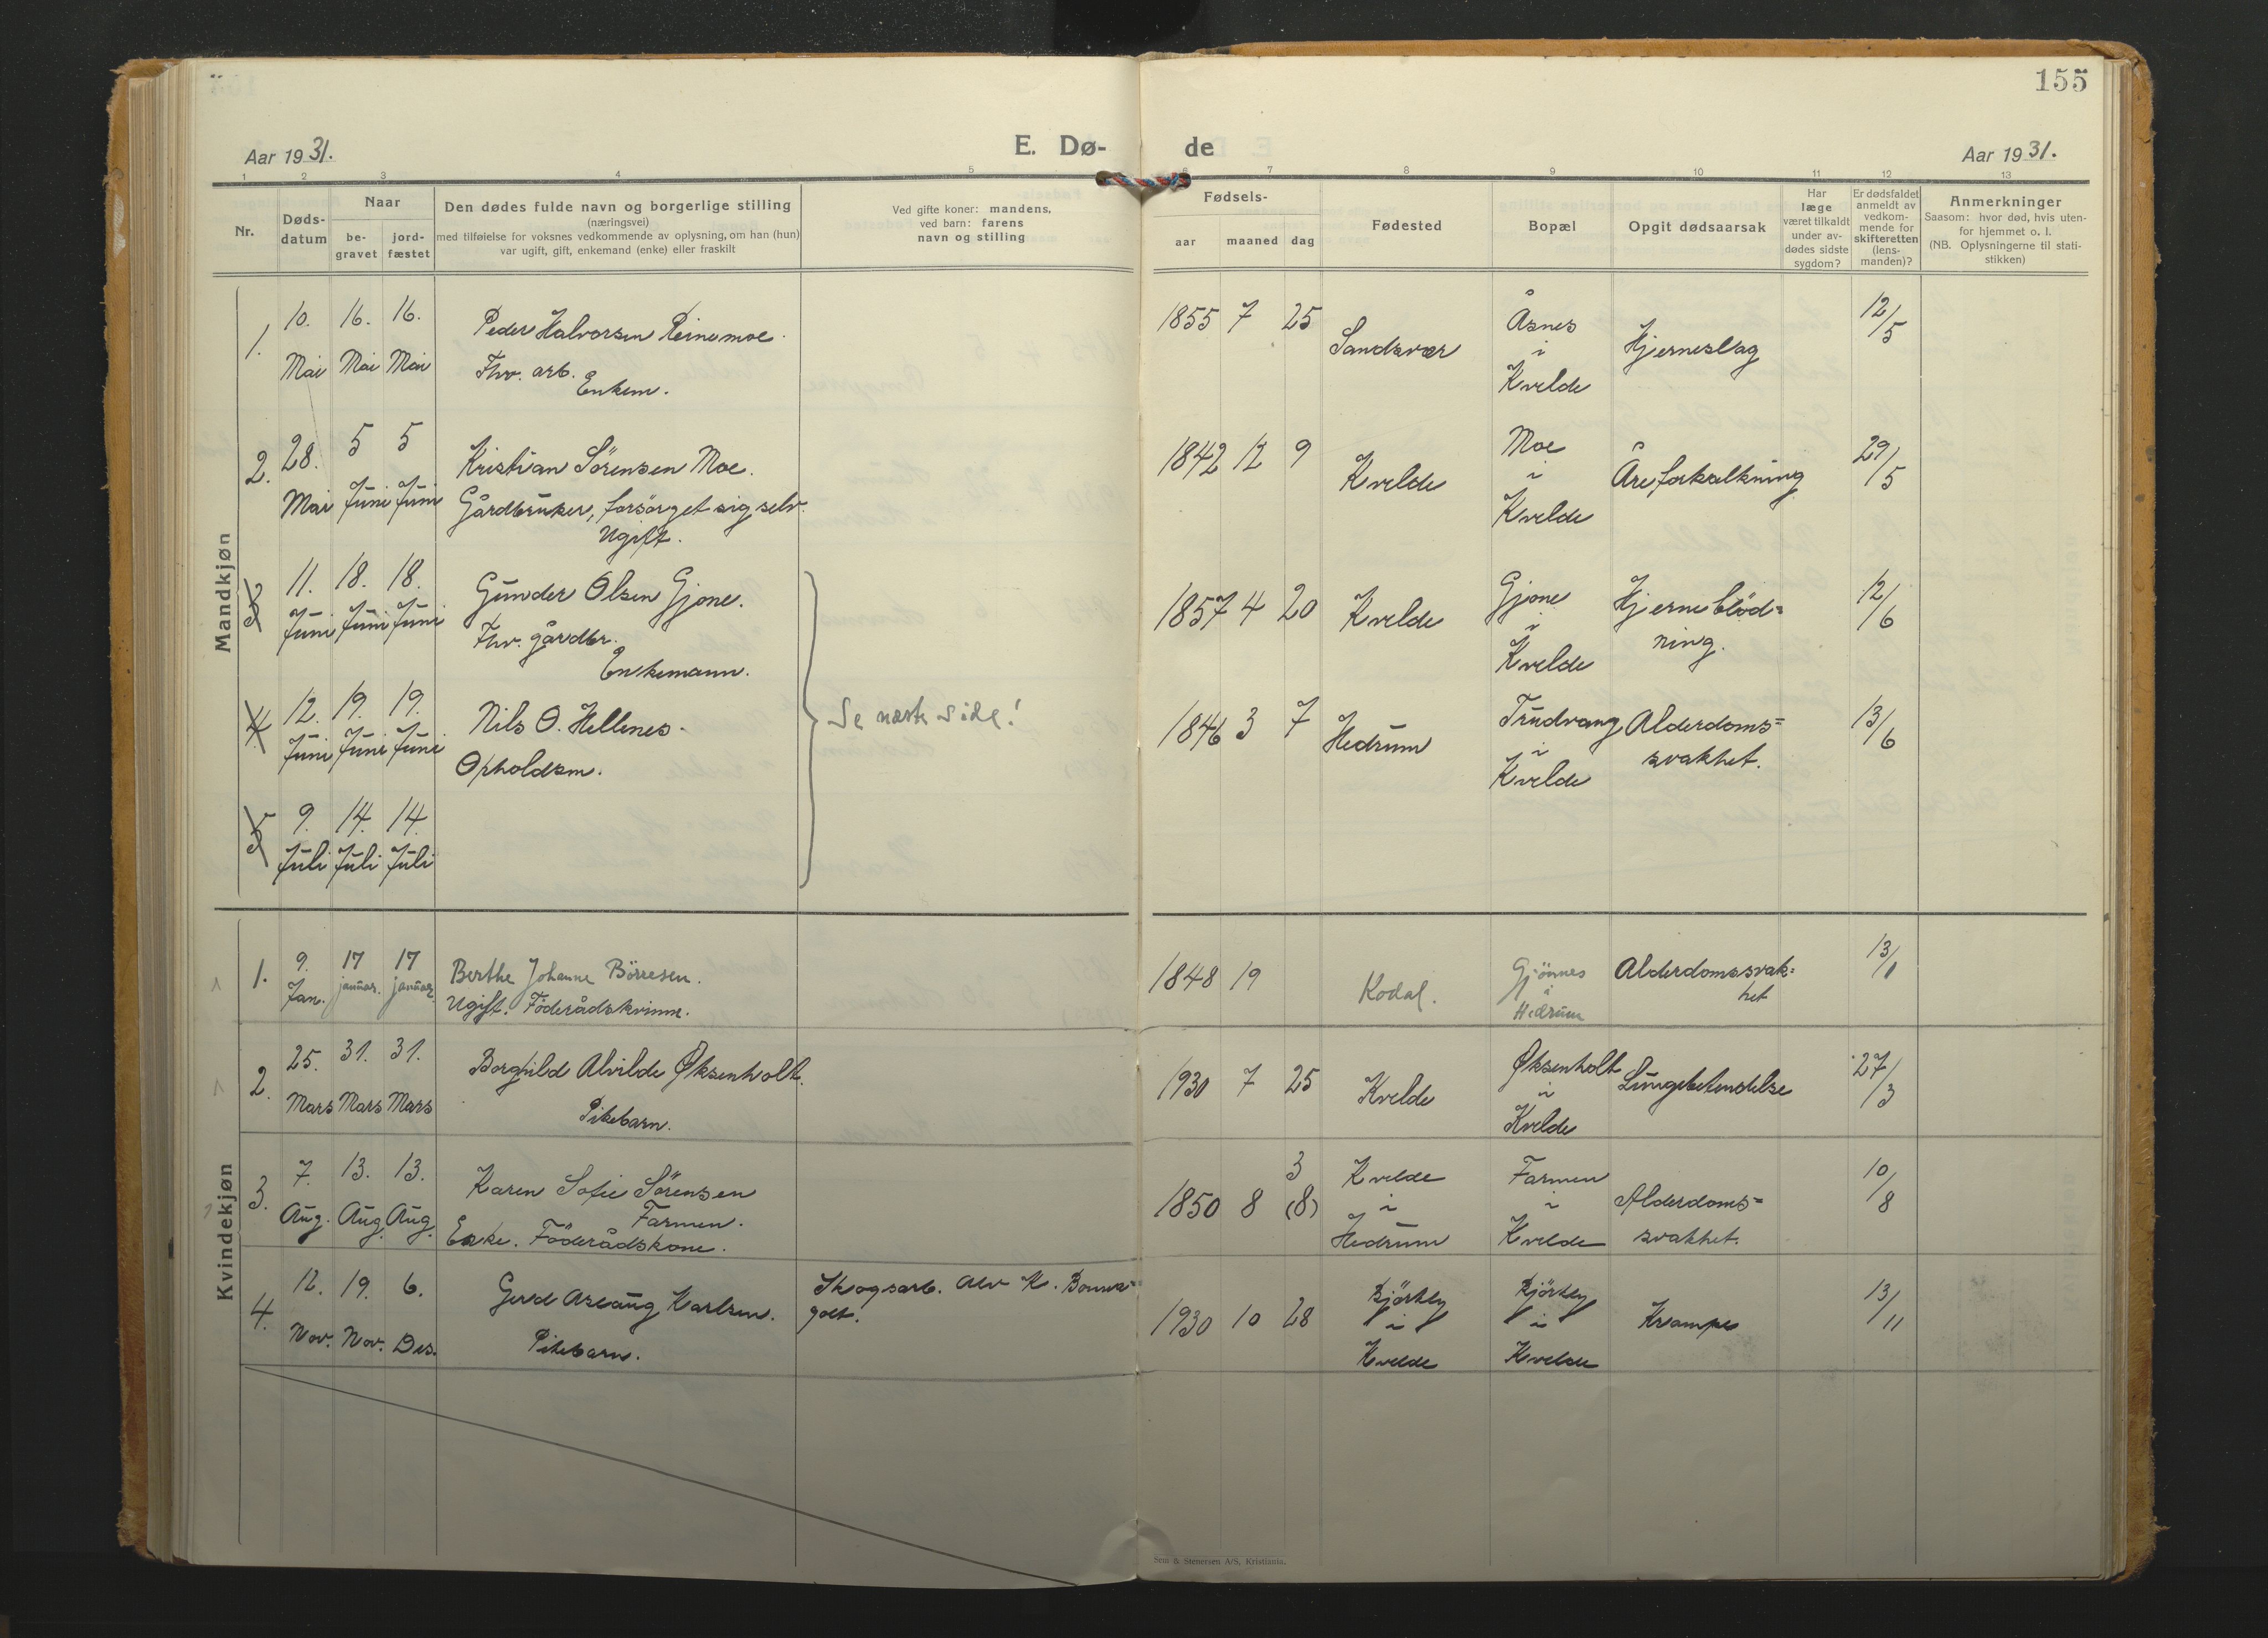 155
Aar 1931.
E. Dø-
de
Aar 1931.
1 2 3 4 5 6 7 8 9 10 11 12 13
Nr.
Døds-
datum
Naar
be-
gravet
jord-
fæstet
Den dødes fulde navn og borgerlige stilling
(næringsvei)
med tilføielse for voksnes vedkommende av oplysning, om han (hun)
var ugift, gift, enkemand (enke) eller fraskilt
Ved gifte koner: mandens,
ved barn: farens
navn og stilling
Fødsels-
aar
maaned
dag
Fødested
Bopæl
Opgit dødsaarsak
Har
læge
været tilkaldt
under av-
dødes sidste
sygdom?
Er dødsfaldet
anmeldt av
vedkom-
mende for
skifteretten
(lens-
manden)?
Anmerkninger
Saasom: hvor død, hvis uten-
for hjemmet o. l.
(NB. Oplysningerne til stati-
stikken)
Mandkjøn
1. 10. 16. 16. Peder Halvorsen Reinemoe. 1855 7 25 Sandsvær Åsnes Hjerneslag 12/5
Mai Mai Mai Fhv. arb. i
Enkem. Kvelde
2. 28. 5 5 Kristian Sörensen Moe. 1842 12 9 Kvelde Moe Åreforkalkning 29/5
Mai Juni Juni Gårdbruker, forsörget sig selv. i
Ugift. Kvelde
3 11. 18. 18. Gunder Olsen Gjone. 1857 4 20 Kvelde Gjone Hjerneblöd= 12/6
Juni Juni Juni Fhv. gårdbr. i ning.
Enkemann. Kvelde
4 12. 19. 19. Nils O. Hellenes. Se næste side! 1846 3 7 Hedrum Trudvang Alderdoms= 13/6
Juni Juni Juni Opholdsm. i Kvelde svakhet.
5 9. 14. 14.
Juli Juli Juli
Kvindekjøn
1. 9. 17 17 Berthe Johanne Börresen. 1848 19 Kodal. Gjönnes Alderdomssvak= 13/1
Jan. januar. januar. Ugift. Föderådskvinne. i Hedrum het
2. 25. 31. 31. Borghild Alvilde Øksenholt. 1930 7 25 Kvelde Øksenholt Lungebetendelse 27/3
Mars Mars Mars Pikebarn. i Kvelde
3. 7. 13. 13. Karen Sofie Sörensen 3 Kvelde Farmen 10/8
Aug. Aug. Aug. Farmen. 1850 8 (8) i i Alderdoms=
Enke. Föderådskone. Hedrum Kvelde svakhet.
4. 12. 19. 6. Gerd Aslaug Karlsen. Skogsarb. Alv K. 1930 10 28 Björkly Björkly Krampe 13/11
Nov. Nov. Des. Pikebarn. i i
Kvelde Kvelde
Sem & Stenersen A/S, Kristiania.